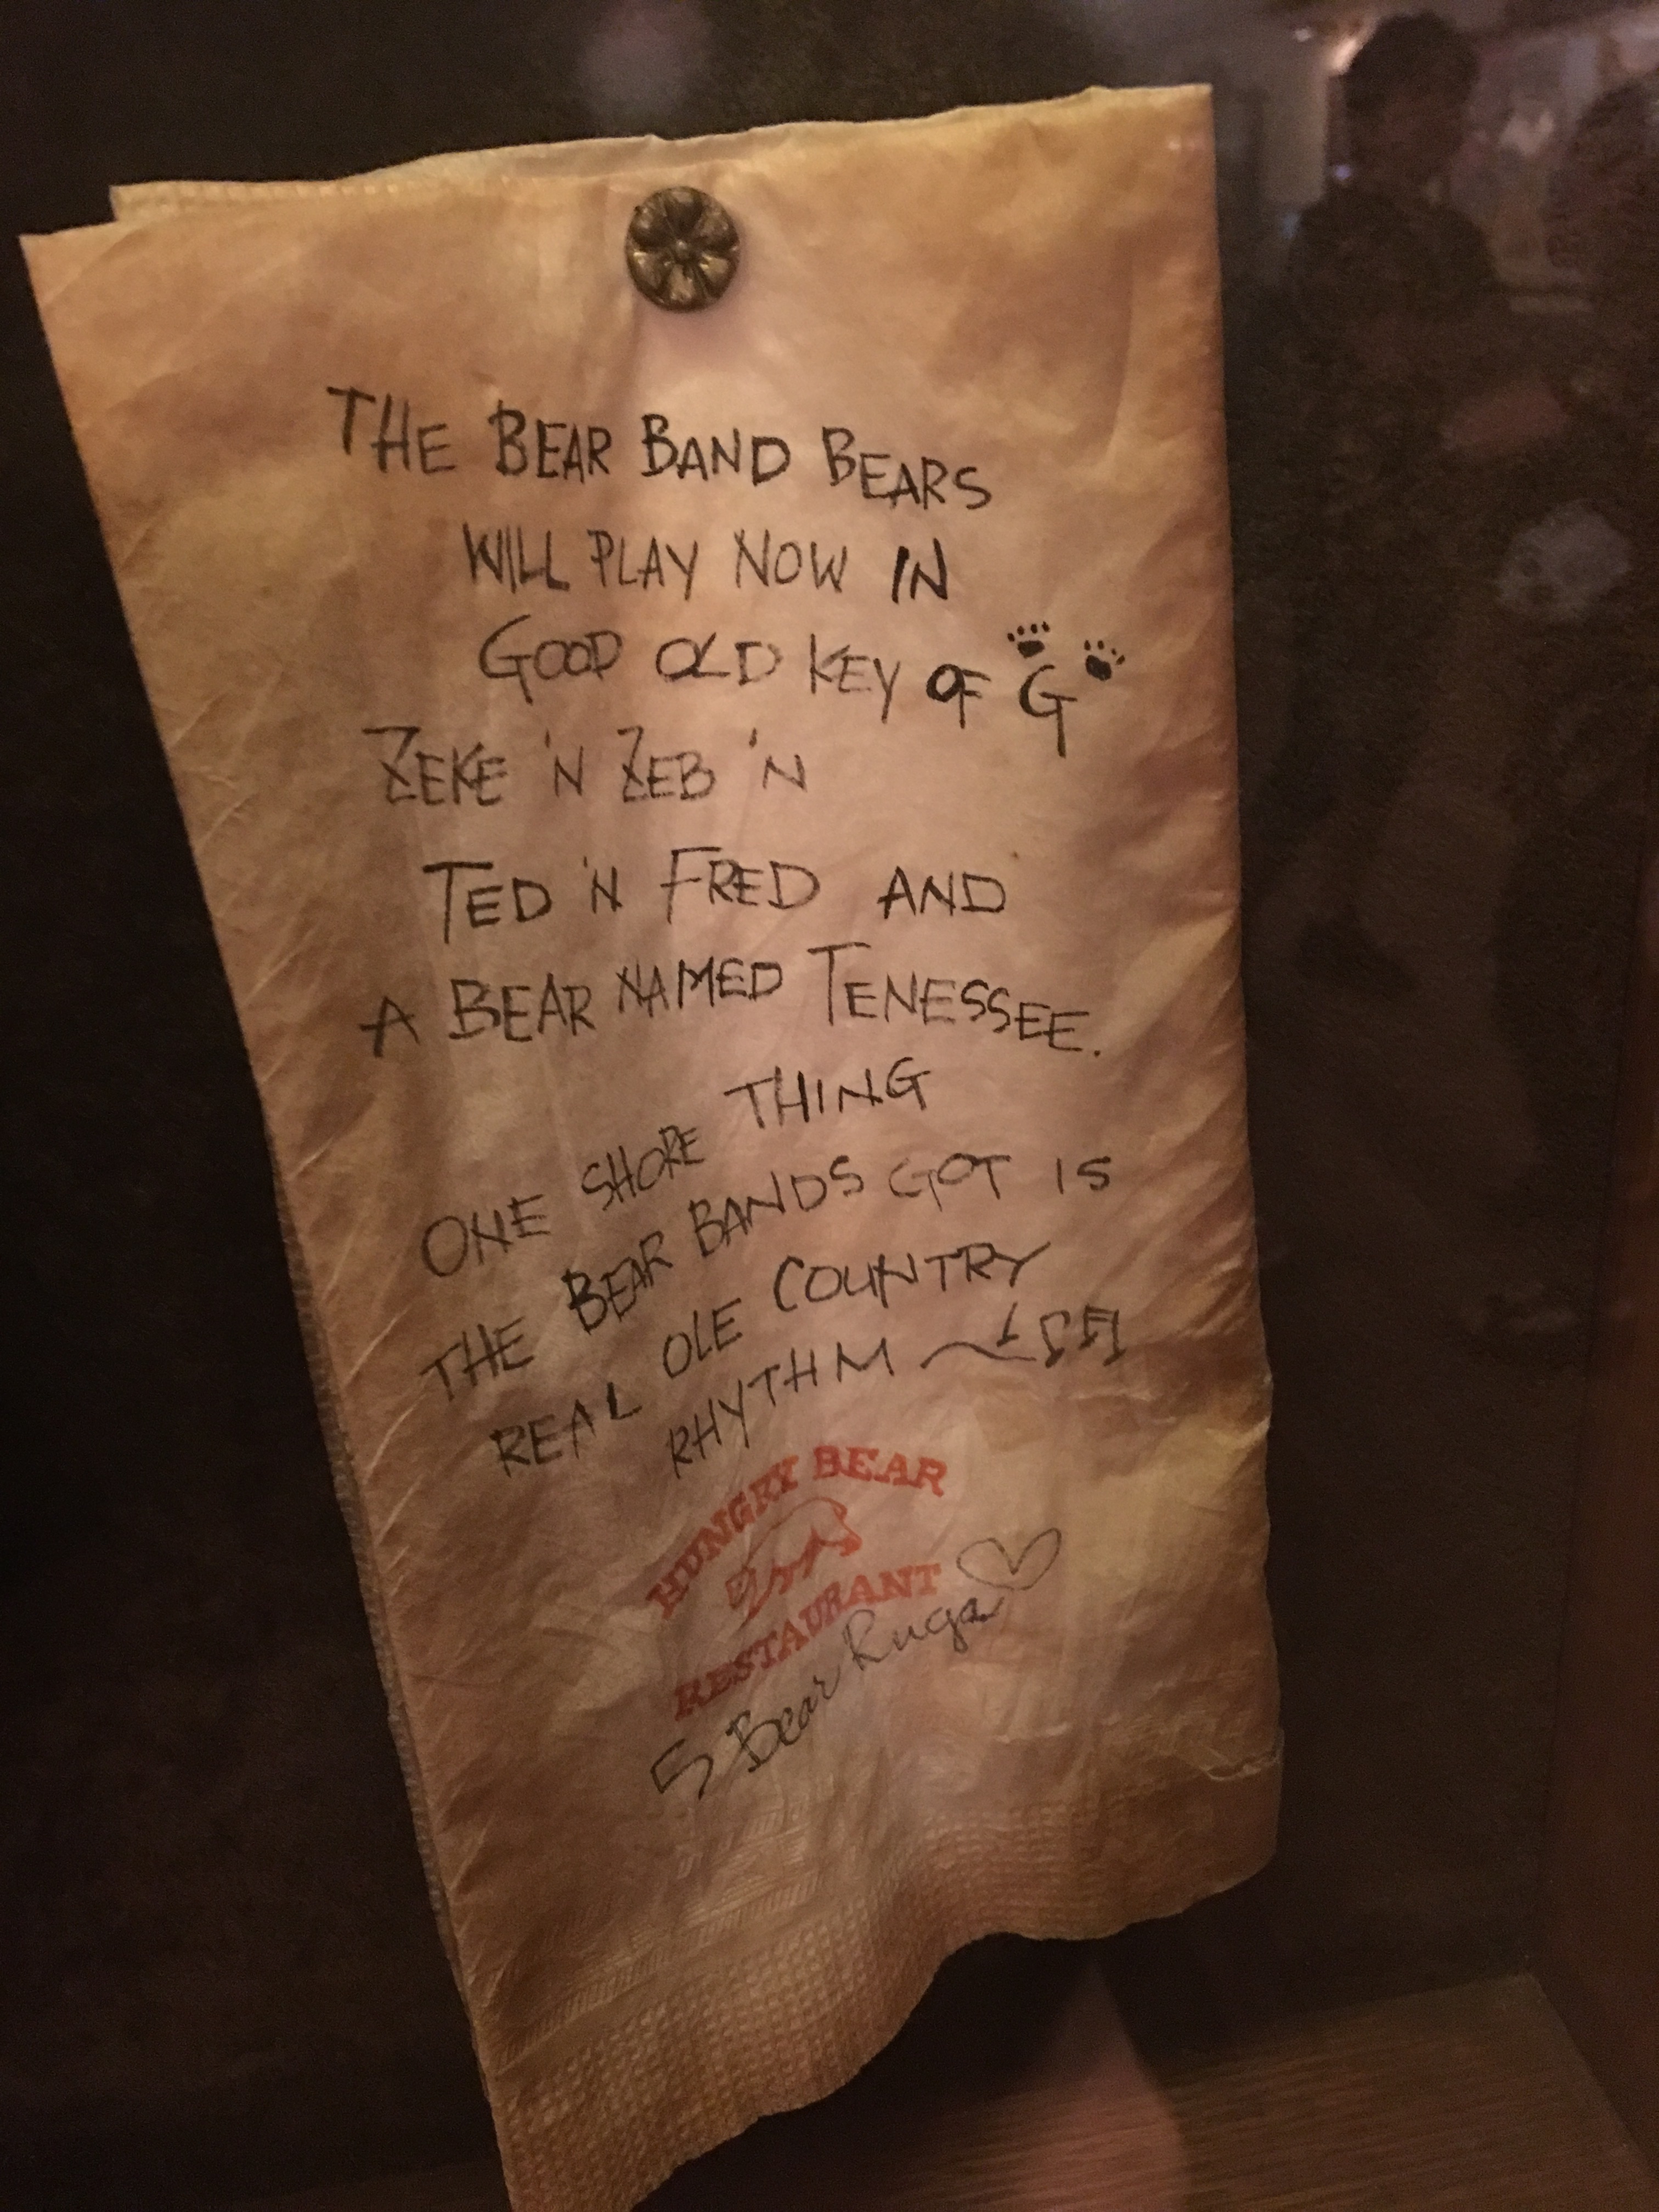 THE BEAR BAND BEARS
WILL PLAY NOW IN
GOOD OLD KEY OF G
ZEKE 'N ZEB 'N
TED 'N FRED AND
A BEAR NAMED TENESSEE.
ONE SHORE THING
THE BEAR BANDS GOT IS
REAL OLE COUNTRY
RHYTHM
HUNGRY BEAR
RESTAURANT
5 Bear Rugs